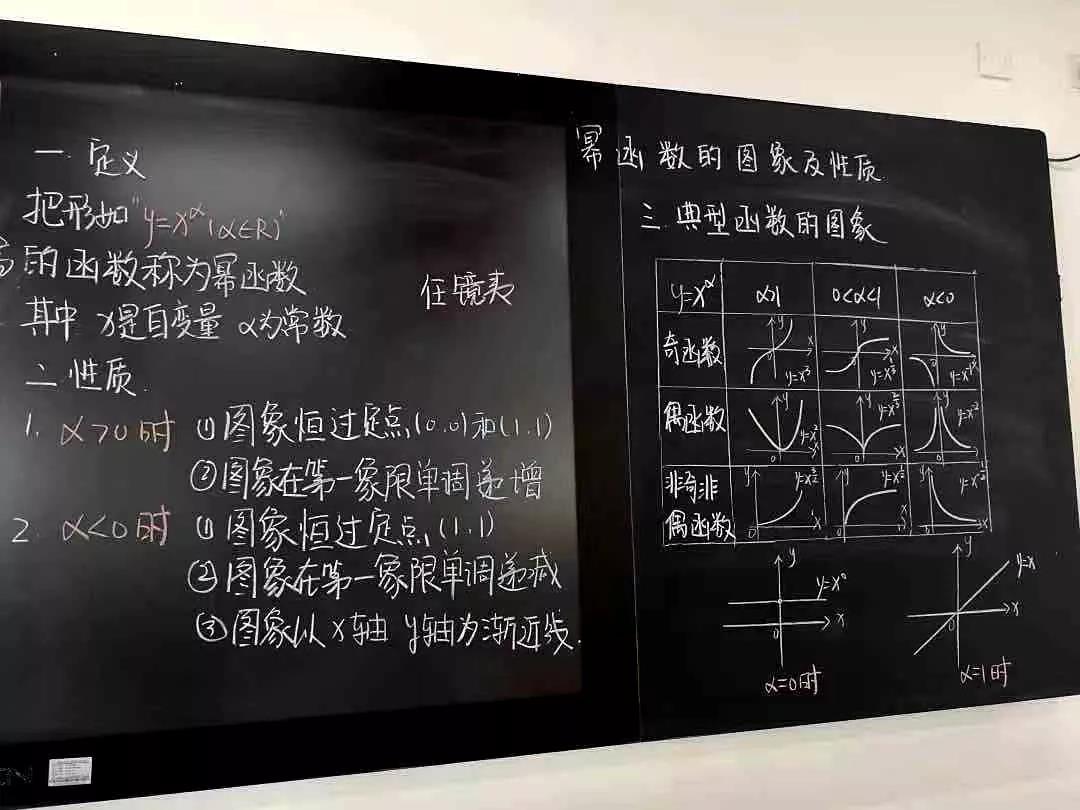 幂函数的图象及性质
一.定义
把形如"y=x^α(α∈R)"
的函数称为幂函数
其中 x是自变量 α为常数
二.性质.
1. α>0时 ①图象恒过定点(0,0)和(1,1)
②图象在第一象限单调递增
2. α<0时 ①图象恒过定点(1,1)
②图象在第一象限单调递减
③图象以x轴 y轴为渐近线.
任镜夷
三.典型函数的图象
y=x^α α>1 0<α<1 α<0
奇函数 y x 0 y=x^3 y x 0 y=x^{1/3} y x 0 y=x^{-1}
偶函数 y x 0 y=x^2 y x 0 y=x^{2/3} y x 0 y=x^{-2}
非奇非
偶函数 y x 0 y=x^{3/2} y x 0 y=x^{1/2} y x 0
y y=x^0 x 0
α=0时
y y=x x 0
α=1时